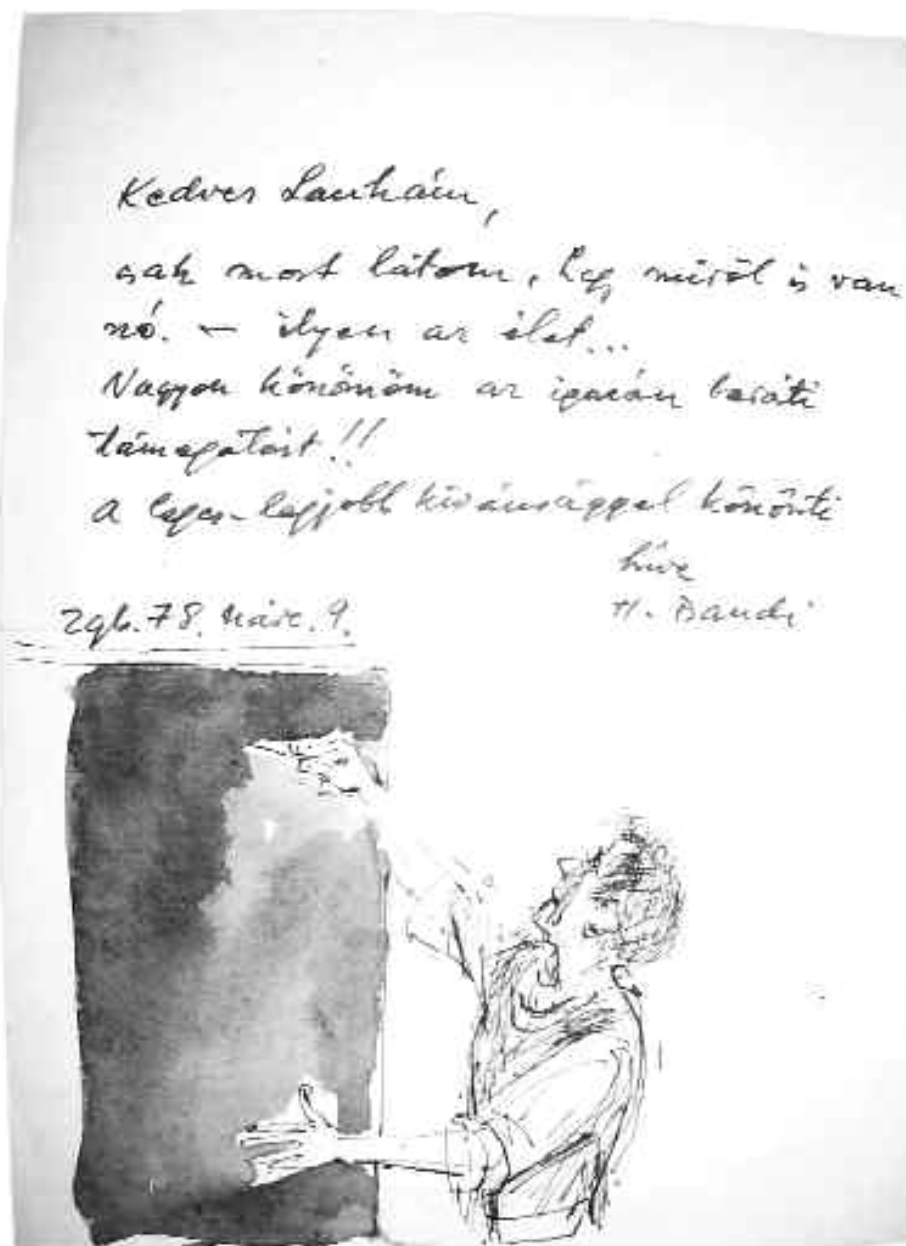 Kedves
csak most látom, hogy miről is van
szó. – ilyen az élet...
Nagyon köszönöm az igazán baráti
támogatást!!
A leges-legjobb kívánsággal köszönti
híve
H. Bandi
Zgb. 78. márc. 9.